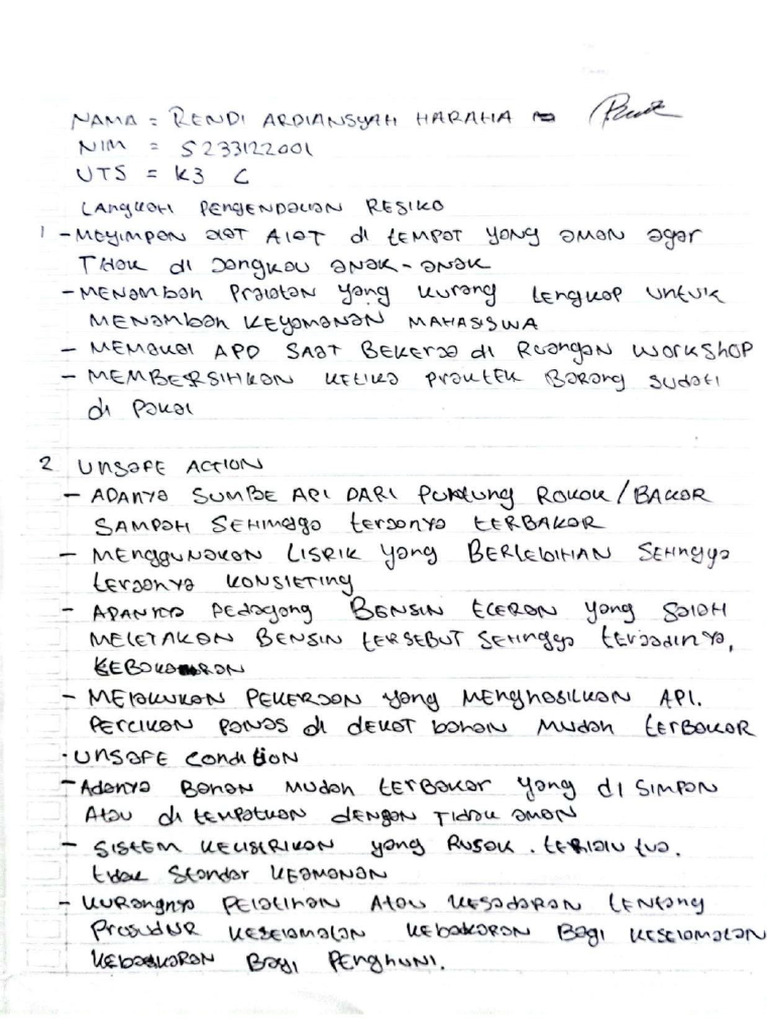 NAMA = RENDI ARDIANSYAH HARAHA
NIM = 5233122001
UTS = K3 C
LANGKAH PENGENDALIAN RESIKO
1 - MEYIMPAN ALAT ALAT di tEMPAT YANG AMAN agar
TIDAK di JANGKAU ANAK-ANAK
- MENAMBAH PRALATAN yang kurang LENGKAP UNTUK
MENAMBAH KEYAMANAN MAHASISWA
- MEMAKAI APD SAAT BEKERJA di RUANGAN WORKSHOP
- MEMBERSIHKAN KETIKA PRAKTEK BARANG SUDAH
di PAKAI
2 UNSAFE ACTION
- ADANYA SUMBE API DARI PUNTUNG ROKOK / BAKAR
SAMPAH SEHINGGA terJANYA tERBAKAR
- MENGGUNAKAN LISRIK yang BERLEBIHAN SEHINGGA
terJANYA KONSLETING
- ADANYA PEDAGANG BENSIN ECERAN yang SALAH
MELETAKAN BENSIN tERSEBUT SEHINGGA terjadinya,
KEBAKARAN
- MELAKUKAN PEKERJAAN yang MENGHASILKAN API.
PERCIKAN PANAS di DEKAT bahan MUDAH tERBAKAR
. UNSAFE Condition
- Adanya BAHAN MUDAH tERBAKAR yang di SIMPAN
Atau di tEMPATKAN dengan TIDAK AMAN
- SISTEM KELISRIKAN yang RUSAK . tERLALU tua.
tidak Standar KEAMANAN
- KURANGNYA PELATIHAN Atau KESADARAN tENtang
PROSUDNR KESELAMATAN KEBAKARAN BAGI KESELAMATAN
KEBAKARAN BAGI PENGHUNI.